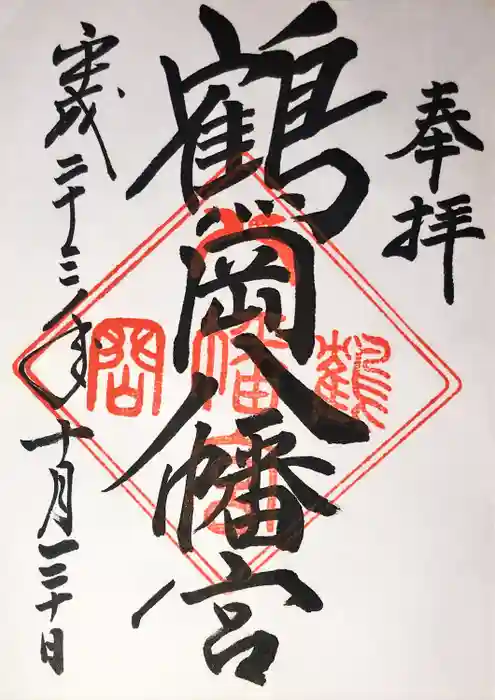 奉拝
鶴岡八幡宮
平成二十三年十月三十日
鶴岡八幡宮